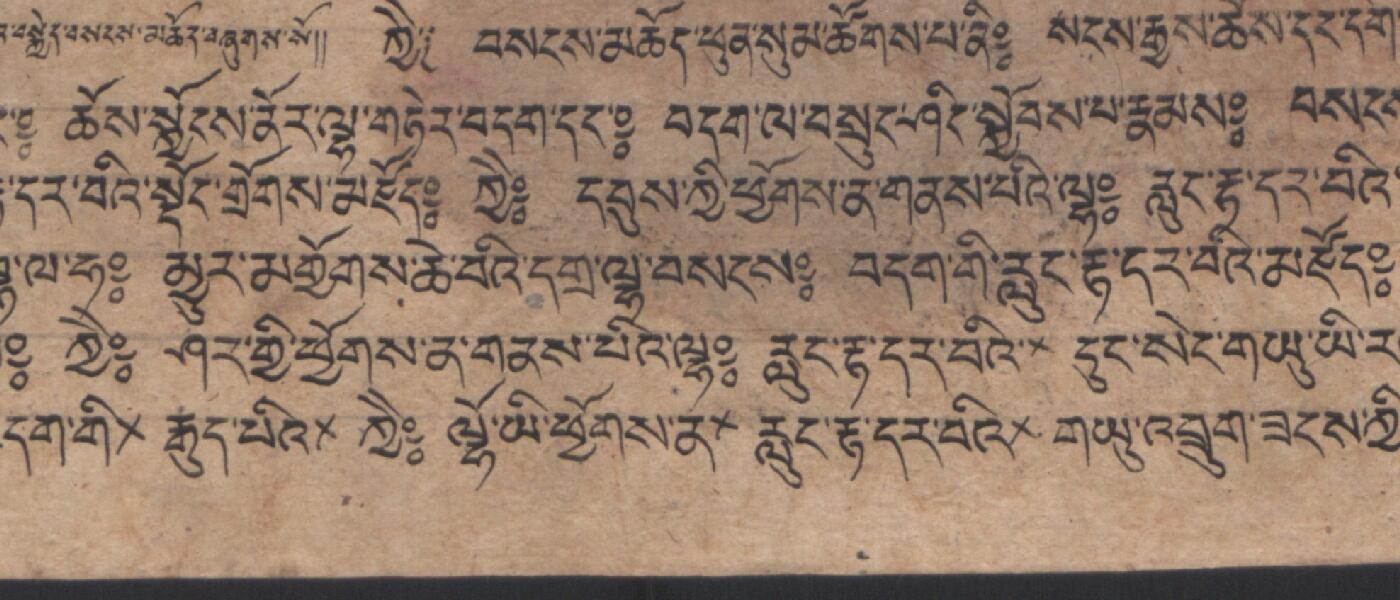 བསྐྱེད་བསངས་མཆོད་བཞུགས་སོ།། ཀྱེ༔ བསངས་མཆོད་ཕུན་སུམ་ཚོགས་པ་ནི༔ སངས་རྒྱས་ཆོས་དར་དགེ
ཆོས་སྐྱོངས་ནོར་ལྷ་གཏེར་བདག་དང་༔ བདག་ལ་བསྲུང་ཞིང་སྐྱོབས་པ་རྣམས༔ བསང
དར་བའི་སྡོང་གྲོགས་མཛོད༔ ཀྱེ༔ དབུས་ཀྱི་ཕྱོགས་ན་གནས་པའི་ལྷ༔ རླུང་རྟ་དར་བའི
ལ་ཧ༔ མྱུར་མགྱོགས་ཆེ་བའི་དགྲ་ལྷ་བསངས༔ བདག་གི་རླུང་རྟ་དར་བའི་མཛོད༔
ཀྱེ༔ ཤར་གྱི་ཕྱོགས་ན་གནས་པའི་ལྷ༔ རླུང་རྟ་དར་བའི་× དུང་སེང་གཡུ་ཡི་ར
དག་གི× རྒུད་པའི× ཀྱེ༔ ལྷོ་ཡི་ཕྱོགས་ན× རླུང་རྟ་དར་བའི× གཡུ་འབྲུག་ཟངས་ཀྱི